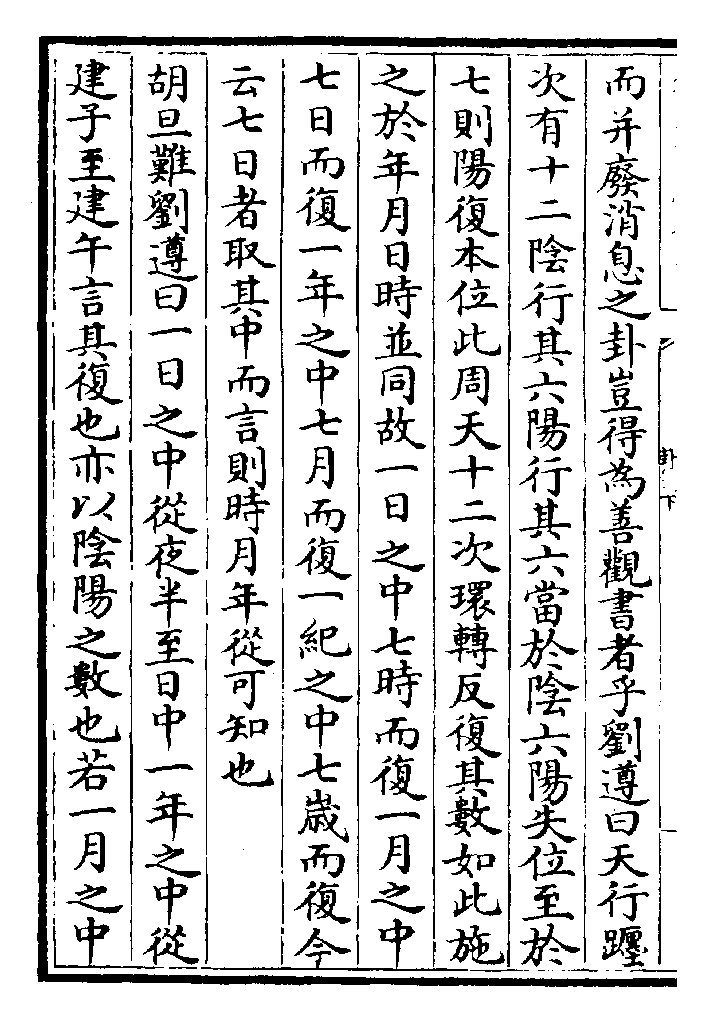 而并廢消息之卦豈得為善觀書者乎劉遵曰天行躔
次有十二陰行其六陽行其六當於陰六陽失位至於
七則陽復本位此周天十二次環轉反復其數如此施
之於年月日時並同故一日之中七時而復一月之中
七日而復一年之中七月而復一紀之中七歲而復今
云七日者取其中而言則時月年從可知也
胡旦難劉遵曰一日之中從夜半至日中一年之中從
建子至建午言其復也亦以陰陽之數也若一月之中